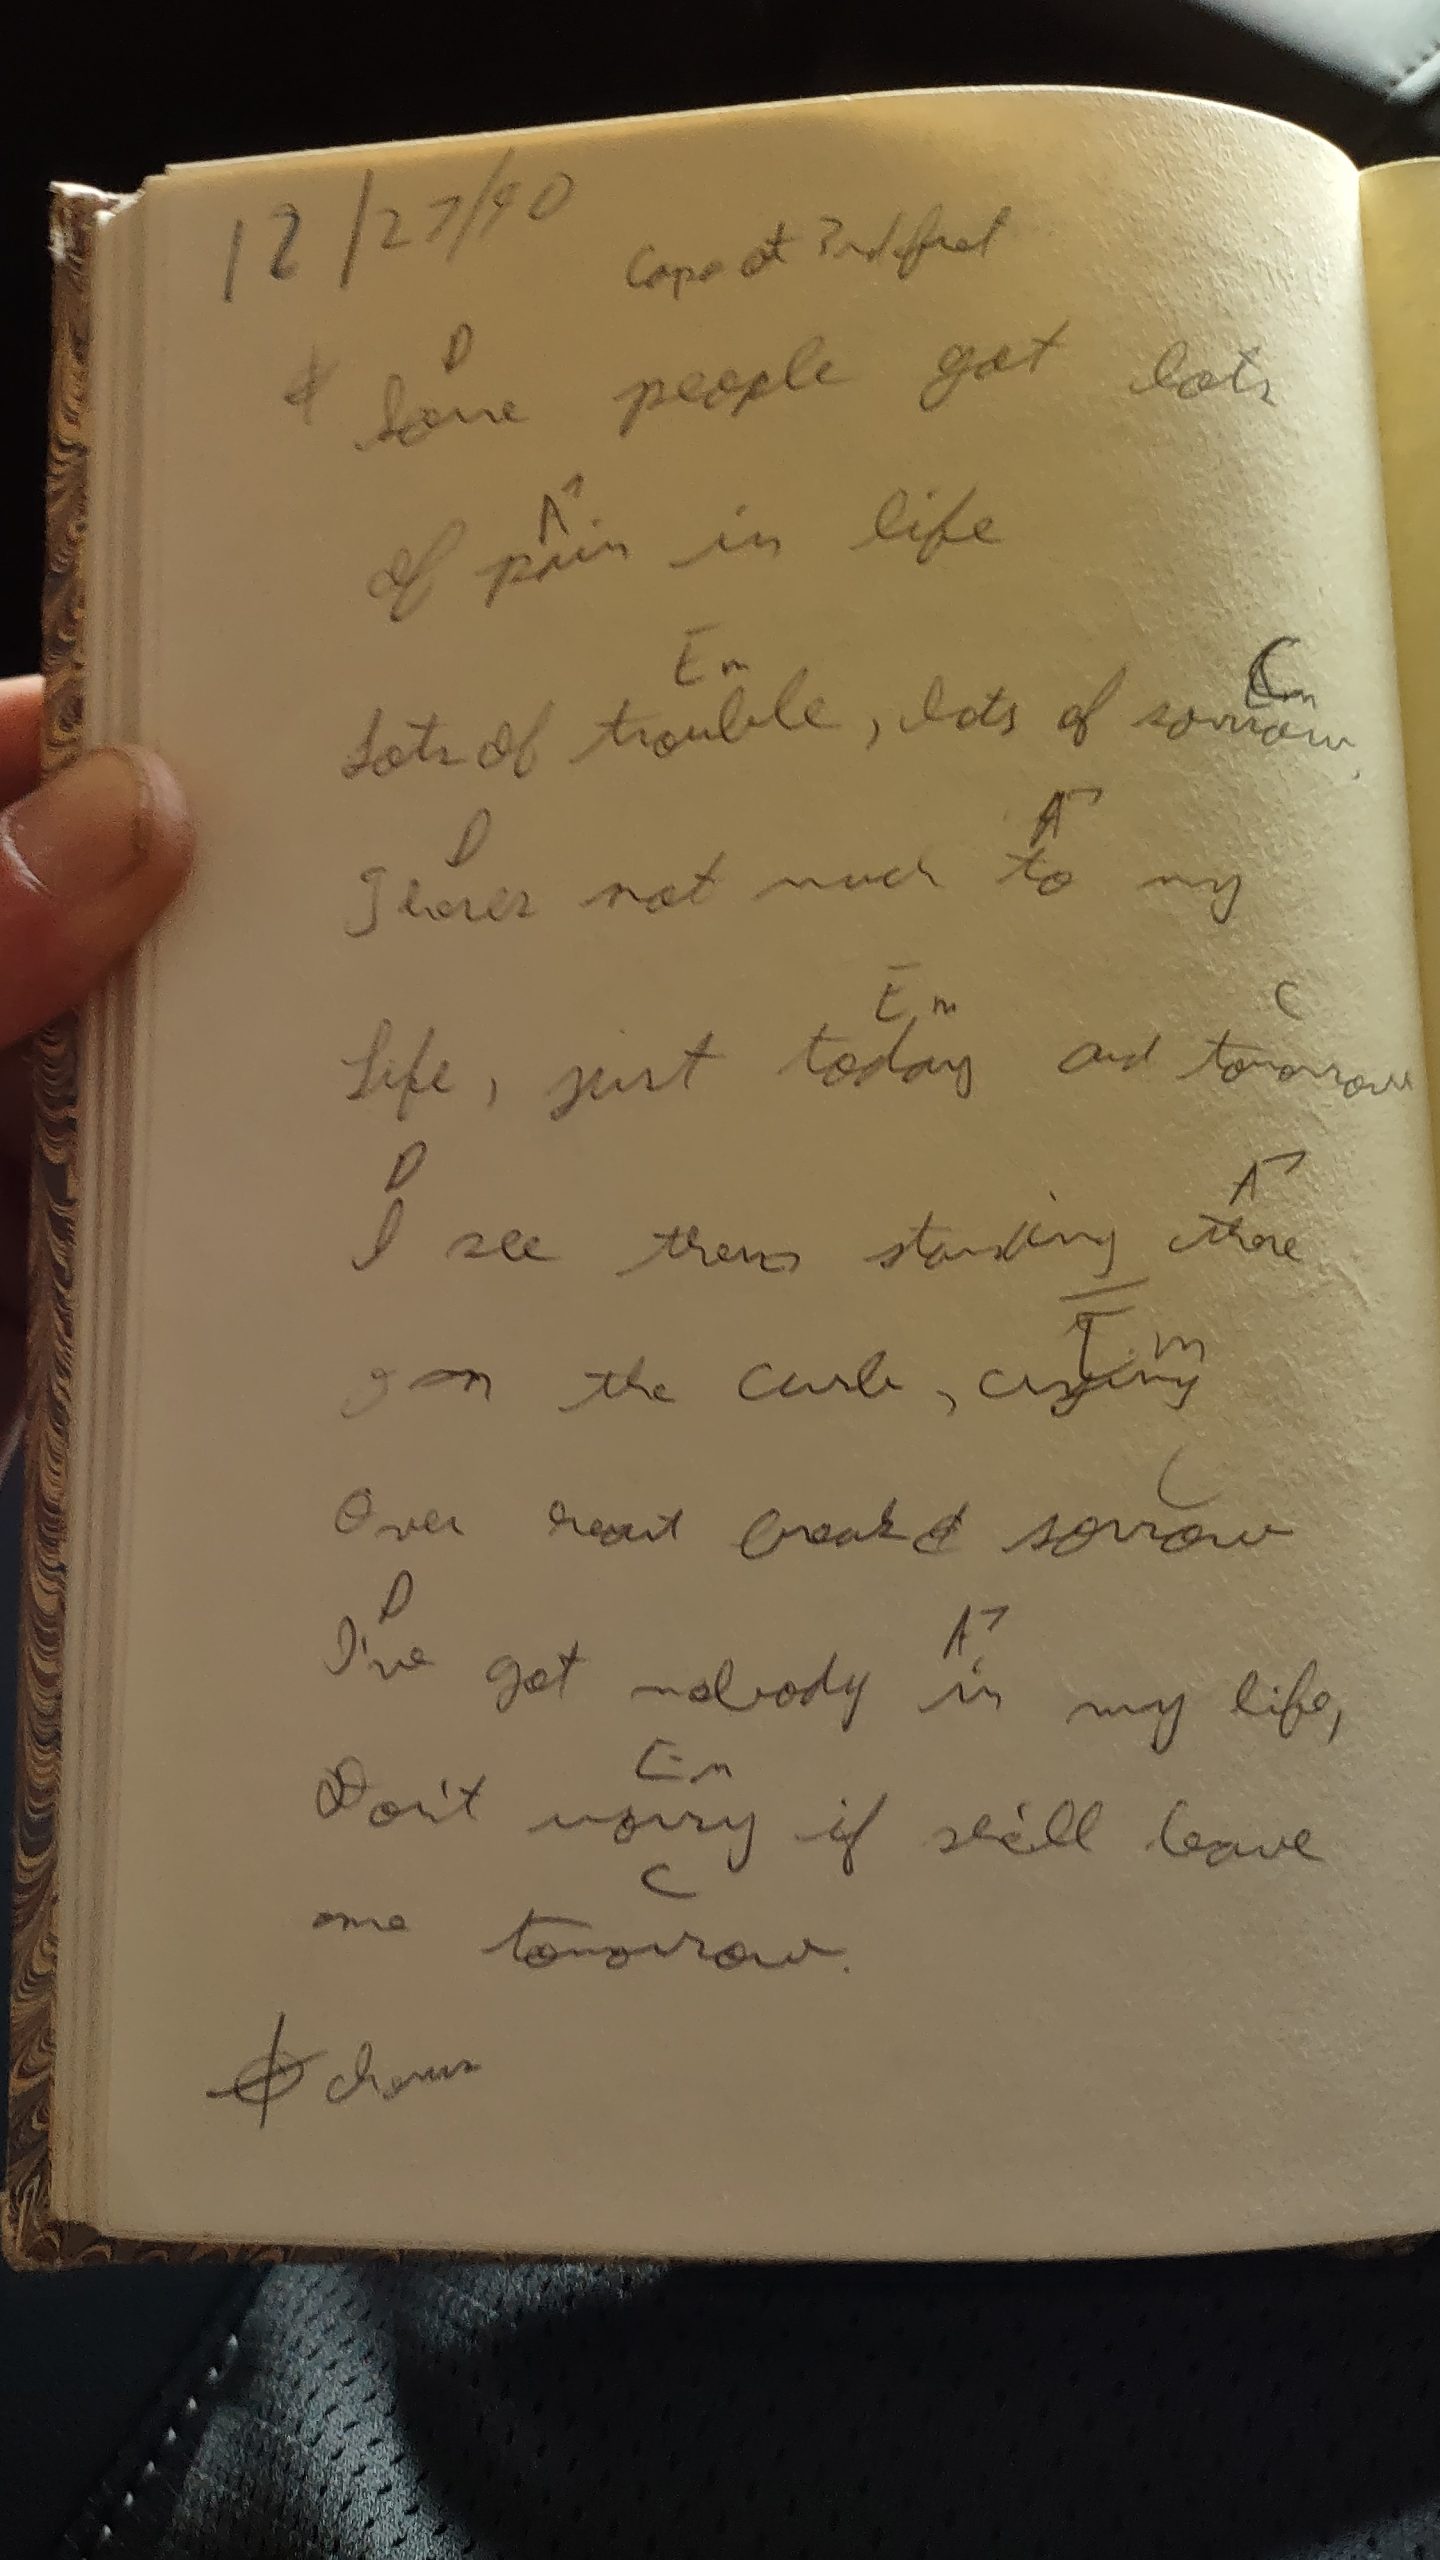 12/27/90
Capo at 2nd fret
D
Some people got lots
A7
of pain in life
Em C
Lots of trouble, lots of sorrow.
D A7
Theres not much to my
Em C
Life, just today and tomorrow
D A7
I see them standing there
Em
on the curb, crying
C
Over heart break & sorrow
D A7
I've got nobody in my life,
Em
Don't worry if she'll leave
C
me tomorrow.
chorus